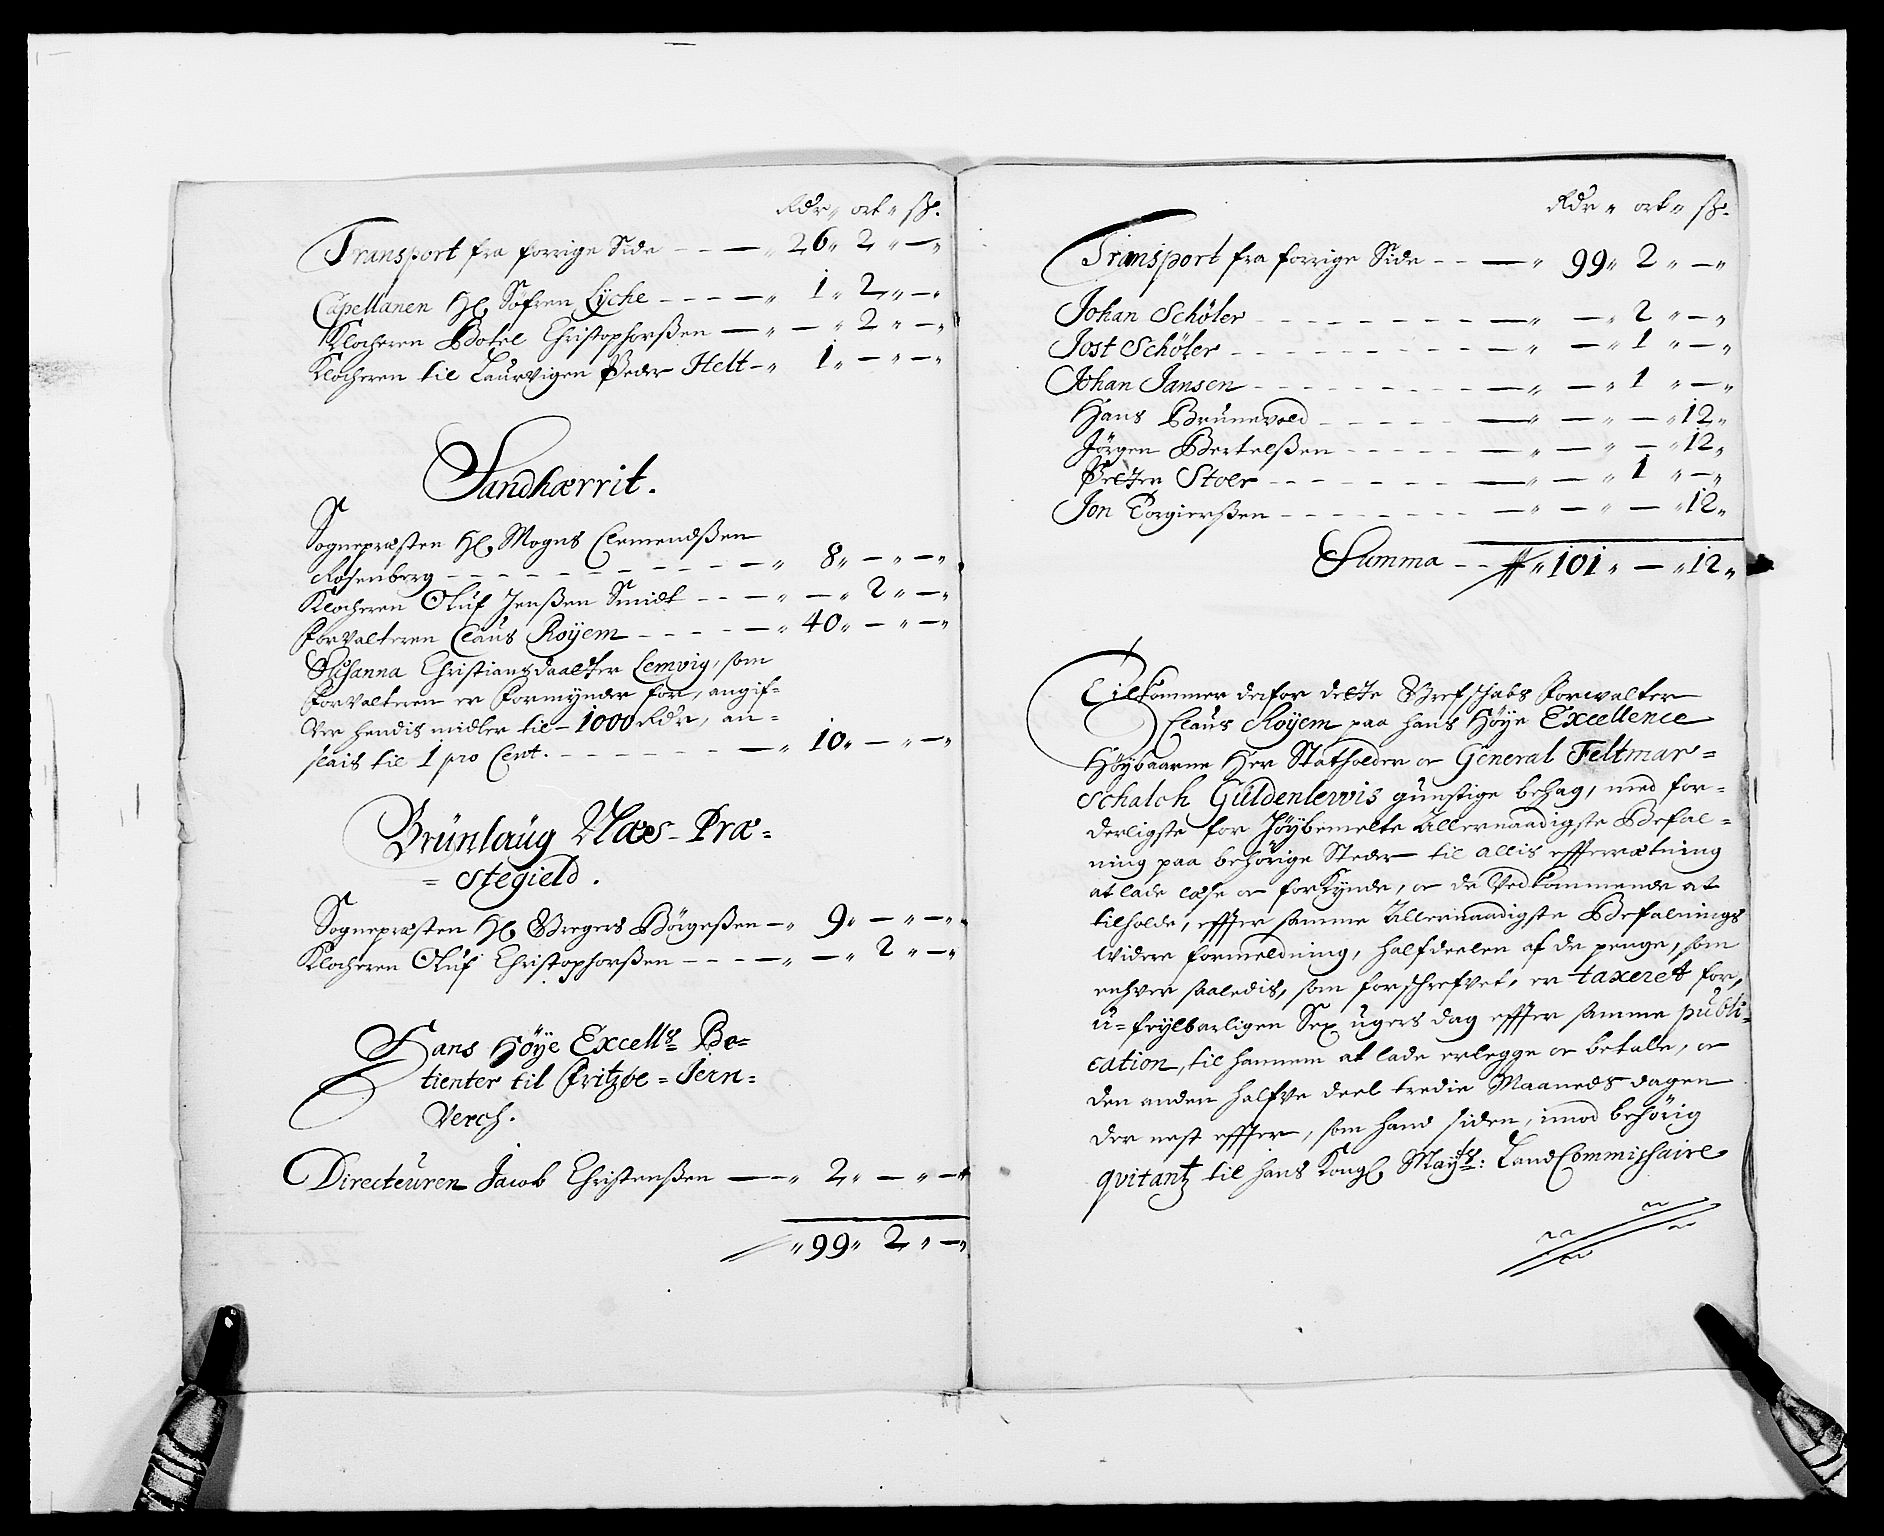 Rdr „ ort „ sk.
Transport fra forrige Side – – — „ 26 „ 2 „ — „
Capellanen Hl. Söfren Lyche – – – — „ 1 „ 2 „ — „
Klocheren Botel Christophorßen — „ — „ 2 „ — „
Klocheren til Laurvigen Peder Helt – „ 1 „ — „ — „
Sandhærrit.
Sognepræsten Hl. Mogns Clemendßen
Rosenberg – – – – – – – – – — „ 8 „ — „ — „
Klocheren Oluf Jenßen Smidt – – — „ — „ 2 „ — „
Forvalteren Claus Röyem – – – – — „ 40 „ — „ — „
Susanna Christiansdaatter Lemvig, som
Forvalteren er Formynder for, angif=
ver hendis midler til – 1000 Rdr, an=
slais til 1 pro Cent. – – – – – – — „ 10 „ — „ — „
Brünlaug Næs – Præ=
= stegield.
Sognepræsten Hl. Gregers Börgeßen — „ 9 „ — „ — „
Klocheren Oluf Christophorßen – – – — „ — „ 2 „ — „
Hans Höye Excells: Be=
tienter til Fritzöe = Jern=
Verch.
Directeuren Jacob Christenßen — – „ 2 „ — „ — „
„ 99 „ 2 „ — „
Rdr „ ort „ sk.
Transport fra forrige Side – – — „ 99 „ 2 „ — „
Johan Schöler – – – – – – – – — „ — „ 2 „ — „
Jost Schöler – – – – – – – – — „ — „ 1 „ — „
Johan Jansen – – – – – – – — „ — „ 1 „ — „
Hans Brünevold – – – – – — „ — „ — „ 12 „
Jörgen Bertelßen – – – – – — „ — „ — „ 12 „
Petter Stoer – – – – – – — „ — „ 1 „ — „
Jon Torgierßen – – – – – – — „ — „ — „ 12 „
Summa – – „ 101 „ — „ 12 „
Tilkommer derfor dette Grefschabs Forvalter
Claus Röyem paa hans Höye Excellence
Höybaarne Her Statholder oc General Feltmar=
schalch Güldenlewis gunstige behag, med for=
derligste for Höybemelte Allernaadigste Befal=
ning paa behörige Steder til allis efterrætning
at lade læse oc forkynde, oc de Vedkommende at
tilholde, effter samme Allernaadigste Befalnings
widere formeldning, halfdeelen af de penge, som
enhver saaledis, som forschrefvet, er taxeret for,
u=feylbarligen Sex ugers dag effter samme publi=
cation, til hannem at lade erlegge oc betale, oc
den anden halfve deel tredie Maaneds dagen
der nest effter, som hand siden, imod behörig
qvitantz til hans Kongl. Mayts: Land Commissaire